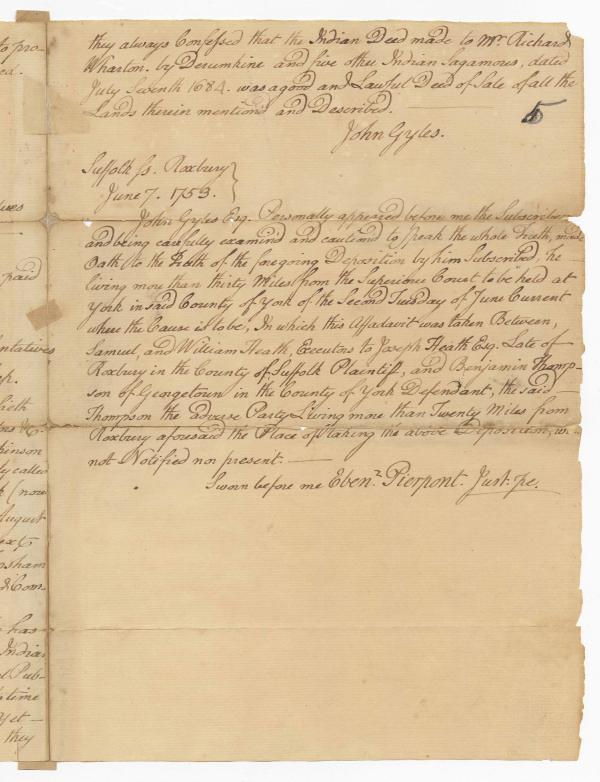 they always Confessed that the Indian Deed made to Mr. Richard
Wharton. by Derumkine and five other Indian Sagamous, dated
July Seventh 1684. was a good and Lawful Deed of Sale of all the
Lands therein mentiond and Described.
5
John Gyles.
Suffolk ss. Roxbury
June 7. 1753.
John Gyles Esq. Personally appeared before me the Subscriber
and being carefully examind and cautiond to speak the whole truth, made
Oath to the truth of the foregoing Deposition by him Subscribed, he
living more than thirty Miles from the Superiour Court to be held at
York in said County of York of the Second Tuesday of June Current
where the Cause is to be, In which this Affadavit was taken Between,
Samuel, and William Heath, Executors to Joseph Heath Esq. Late of
Roxbury in the County of Suffolk Plaintiff, and Benjamin Thomp-
son of Georgetown in the County of York Defendant, the said
Thompson the adverse Party Living more than Twenty Miles from
Roxbury aforesaid the Place of taking the above Deposition, was
not Notified nor present.
Sworn before me Ebenr. Pierpont. Just. pe.
to pro-
paid
ntatives
inson
ly called
(now
August
sham
Com-
has
Indian
Pub-
time
yet
they